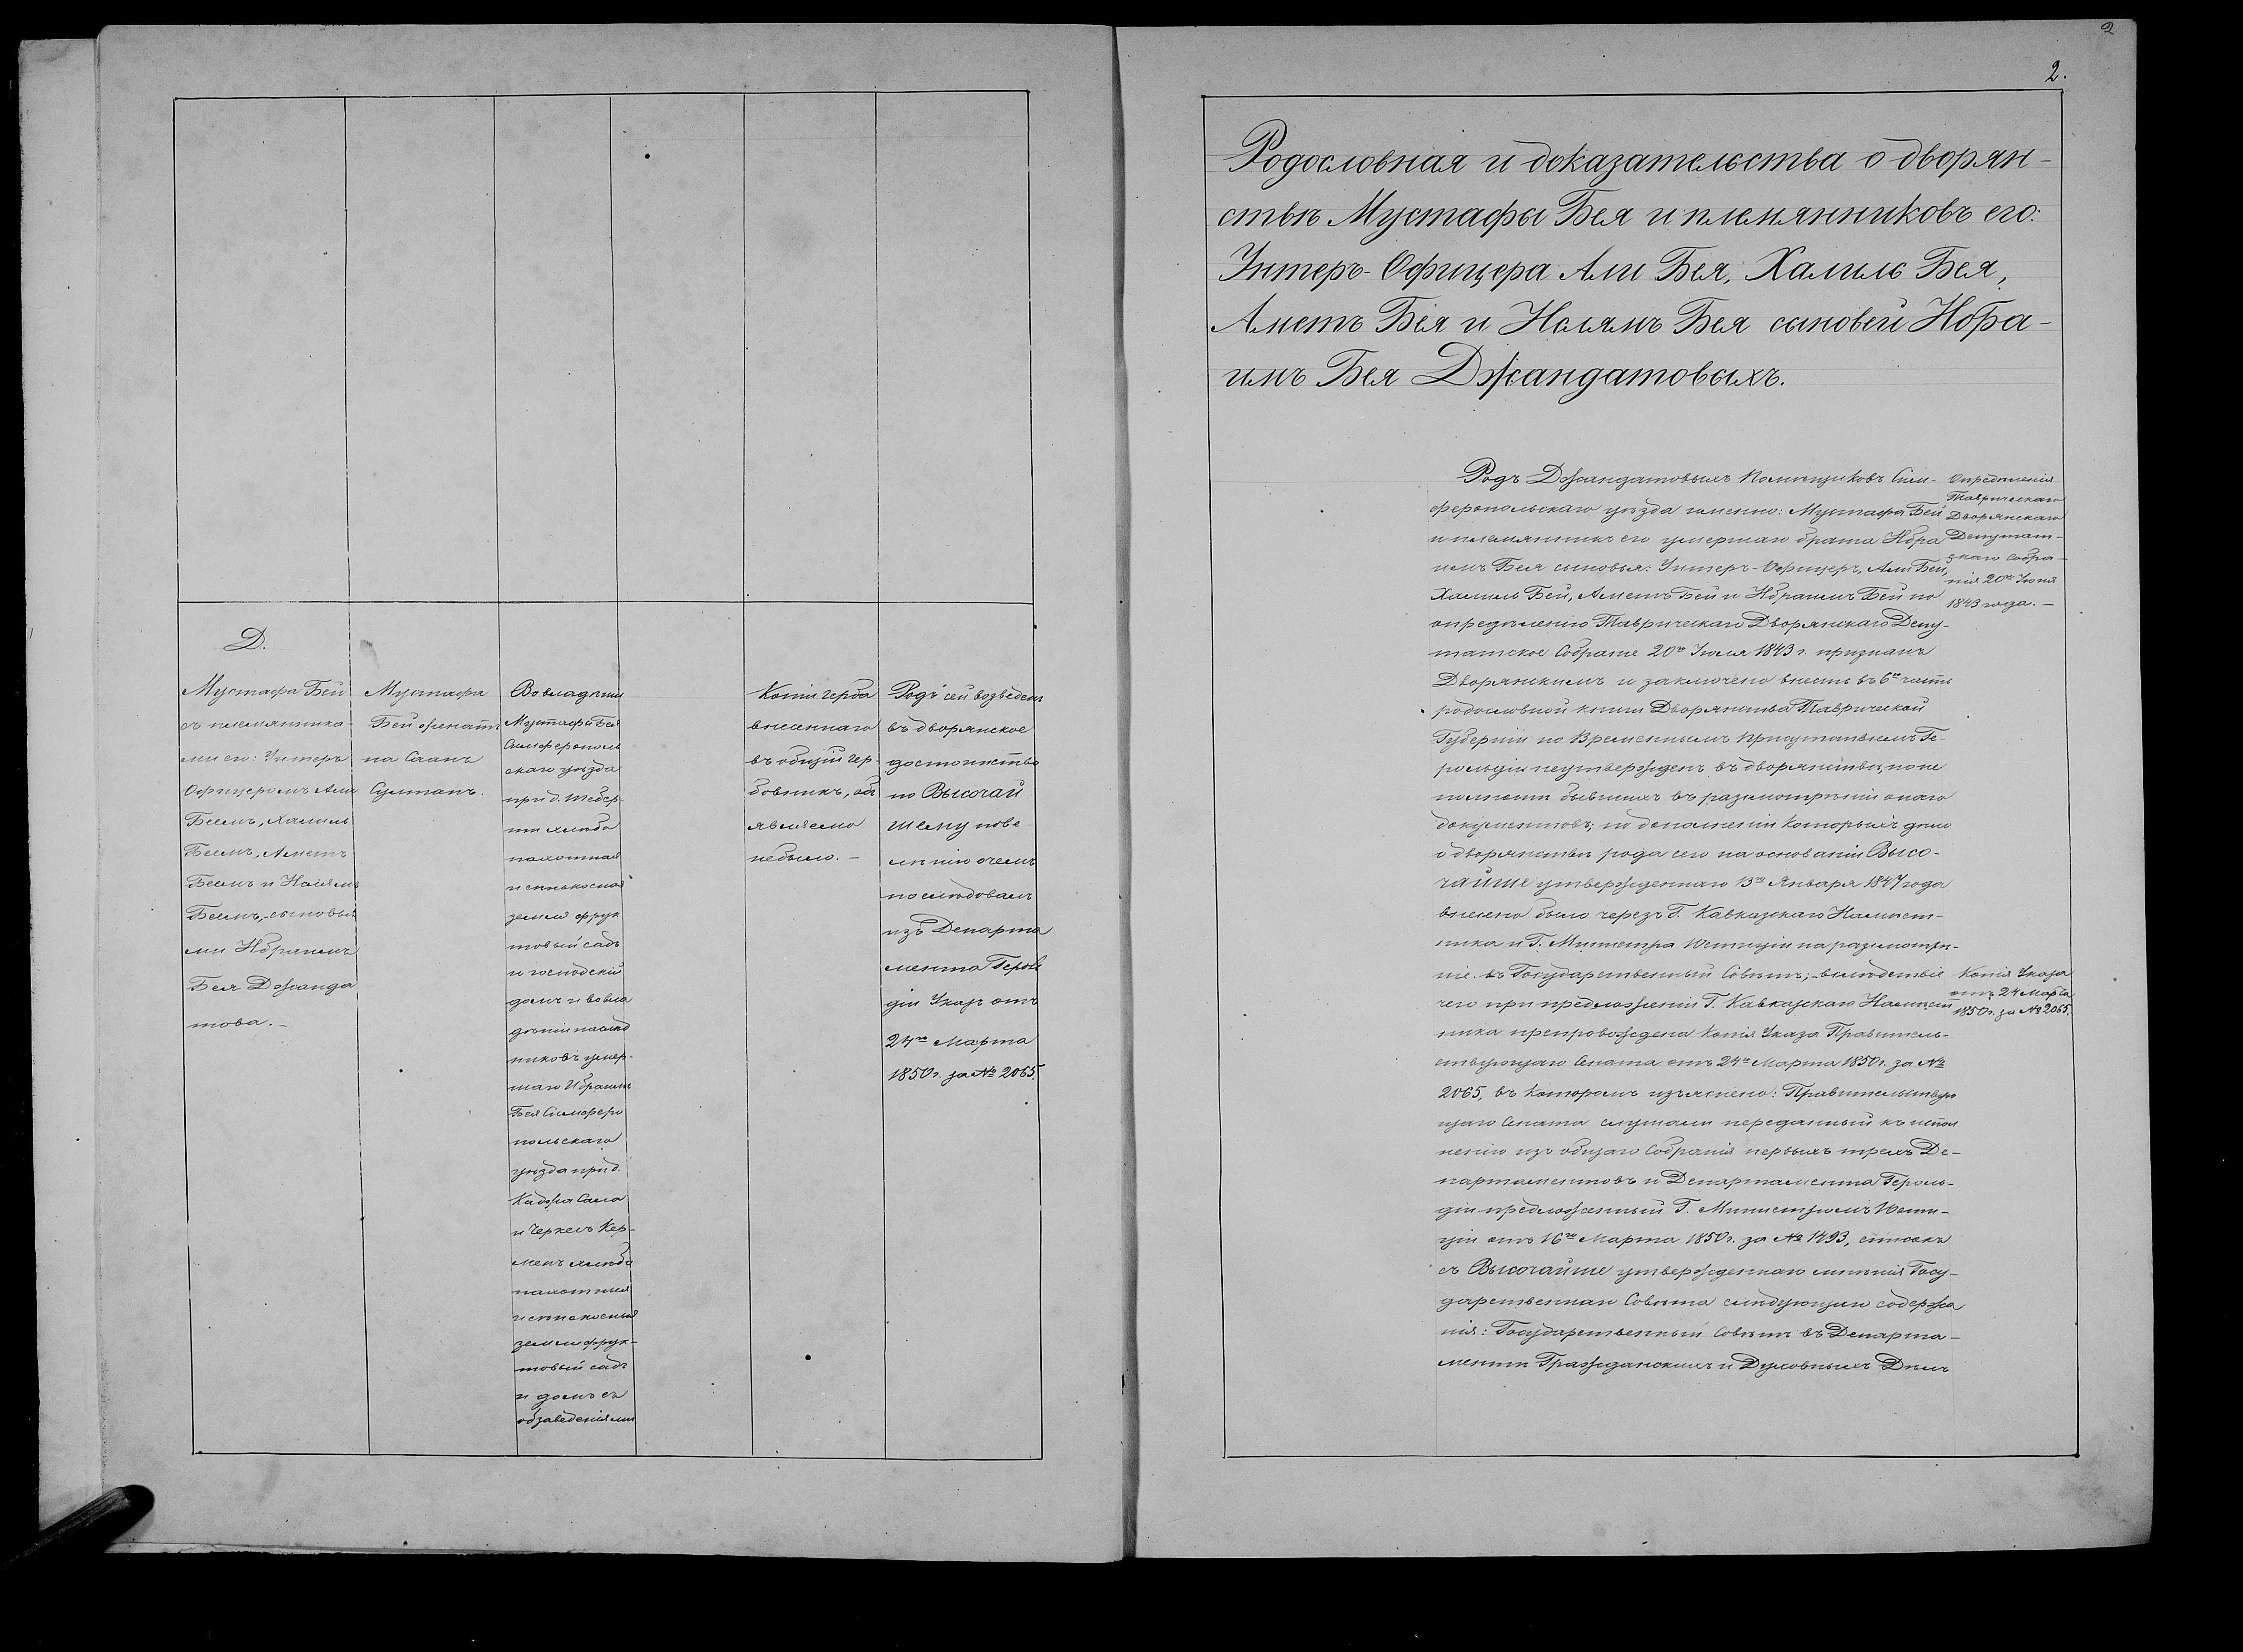 Д.
Мустафа Бей
съ племянника-
ми его: Унтеръ
Офицеромъ Али
Беемъ, Халиль
Беемъ, Аметъ
Беемъ и Ислямъ
Беемъ, сыновья
ми Ибраимъ
Бея Джанда
това. —
Мустафа
Бей женатъ
на Саанъ
Султанъ.
Во владѣнии
Мустафы Бея
Симферополь
скаго уѣзда
при д.
хлѣбо
пахотная
и сенокосная
земля фрук
товый садъ
и господскій
домъ и во вла
дѣніи наслѣд
никовъ умер-
шаго Ибраимъ
Бея Симферо
польскаго
уѣзда при д.
Каджи Сала
и Черкесъ Кер-
менъ хлѣбо
пахотныя
и сенокосныя
земли фрук-
товый садъ
и домъ съ
обзаведеніями
Копіи герба
внесеннаго
въ общій гер-
бовникъ, объ
являемо
небыло. —
Родъ сей возведенъ
въ дворянское
достоинство
по Высочай
шему пове
лѣнію о чемъ
послѣдовалъ
изъ Департа
мента Героль
діи Указъ отъ
24го Марта
1850 г. за № 2065.
2
2.
Родословная и доказательства о дворян-
ствѣ Мустафы Бея и племянниковъ его:
Унтеръ-Офицера Али Бея, Халиль Бея,
Аметъ Бея и Ислямъ Бея сыновей Ибра-
имъ Бея Джандатовыхъ.
Родъ Джандатовыхъ Помѣщиковъ Сим-
феропольскаго уѣзда именно: Мустафа Бей
и племянники его умершаго брата Ибра
имъ Бея сыновья: Унтеръ-Офицеръ, Али Бей,
Халиль Бей, Аметъ Бей и Ибраимъ Бей по
опредѣленію Таврическаго Дворянскаго Депу-
татское Собраніе 20го Іюня 1843 г. признанъ
Дворянскимъ и заключено внесть въ 6ю часть
родословной книги Дворянства Таврической
Губерніи но Временнымъ Присутствіемъ Ге-
рольдіи неутвержденъ въ дворянствѣ, по не
полнотѣ бывшихъ въ разсмотрѣніи онаго
документовъ; по дополненіи которыхъ дѣло
о дворянствѣ рода сего на основаніи Высо-
чайше утвержденнаго 13го Января 1847 года
внесено было черезъ Г. Кавказскаго Намѣст-
ника и Г. Министра Юстиціи на разсмотрѣ-
ніе въ Государственный Совѣтъ; - вслѣдствіе
чего при предложеніи Г. Кавказскаго Намѣст
ника препровождена копія Указа Правитель-
ствующаго Сената отъ 24го Марта 1850 г. за №
2065, въ которомъ изъяснено: Правительствую
щаго Сената слушали переданный къ испол
ненію изъ общаго Собранія первыхъ трехъ Де-
партаментовъ и Департамента Героль-
діи предложенный Г. Министромъ Юсти-
ціи отъ 16го Марта 1850 г. за № 1493, списокъ
съ Высочайше утвержденнаго мнѣнія Госу-
дарственнаго Совѣта слѣдующаго содержа
нія: Государственный Совѣтъ въ Департа-
ментѣ Гражданскихъ и Духовныхъ Дѣлъ
Опредѣленія
Таврическаго
Дворянскаго
Депутат-
скаго Собра-
нія 20го Іюня
1843 года. —
Копія Указа
отъ 24 Марта
1850 г. за № 2065.